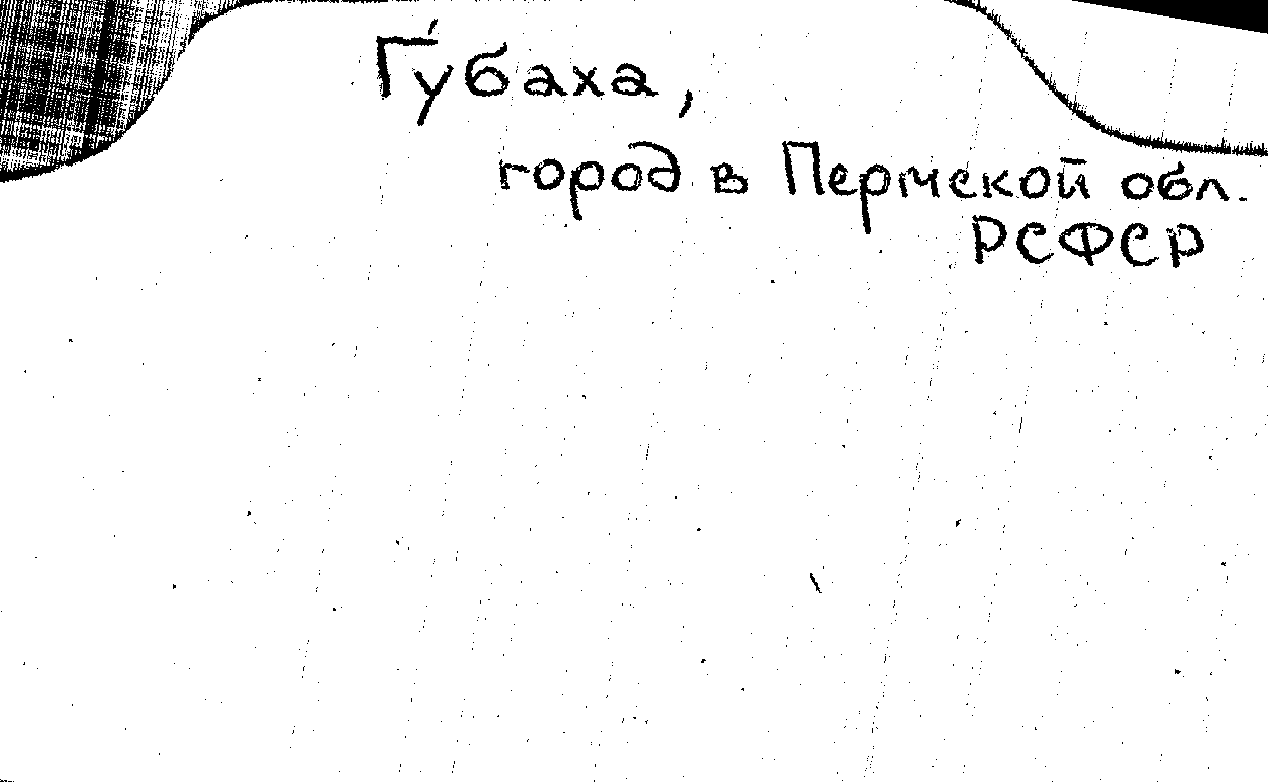 Гу́баха,
город в Пермской обл.
РСФСР